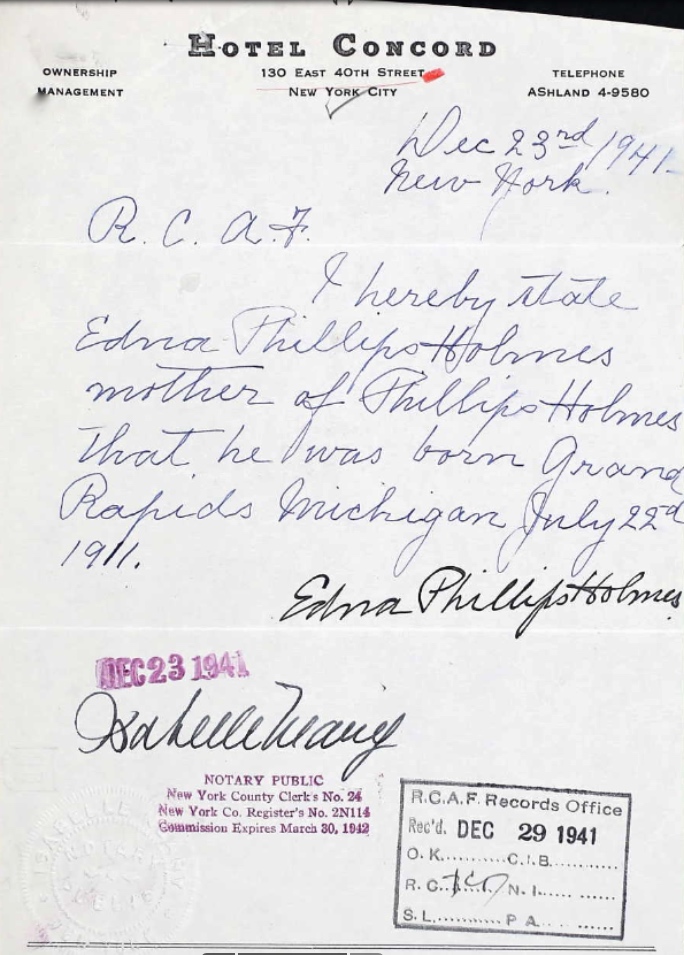 HOTEL CONCORD
OWNERSHIP
MANAGEMENT
130 EAST 40TH STREET
NEW YORK CITY
TELEPHONE
ASHLAND 4-9580
Dec 23rd 1941
New York.
R. C. A. F.
I hereby state
Edna Phillips Holmes
mother of Phillips Holmes
that he was born Grand
Rapids Michigan July 22d
1911.
Edna Phillips Holmes
DEC 23 1941
Isabelle
NOTARY PUBLIC
New York County Clerk's No. 24
New York Co. Register's No. 2N114
Commission Expires March 30, 1942
R.C.A.F. Records Office
Rec'd. DEC 29 1941
O. K.......... C.I.B...........
R. C.......... N. I...........
S. L........... P A...........